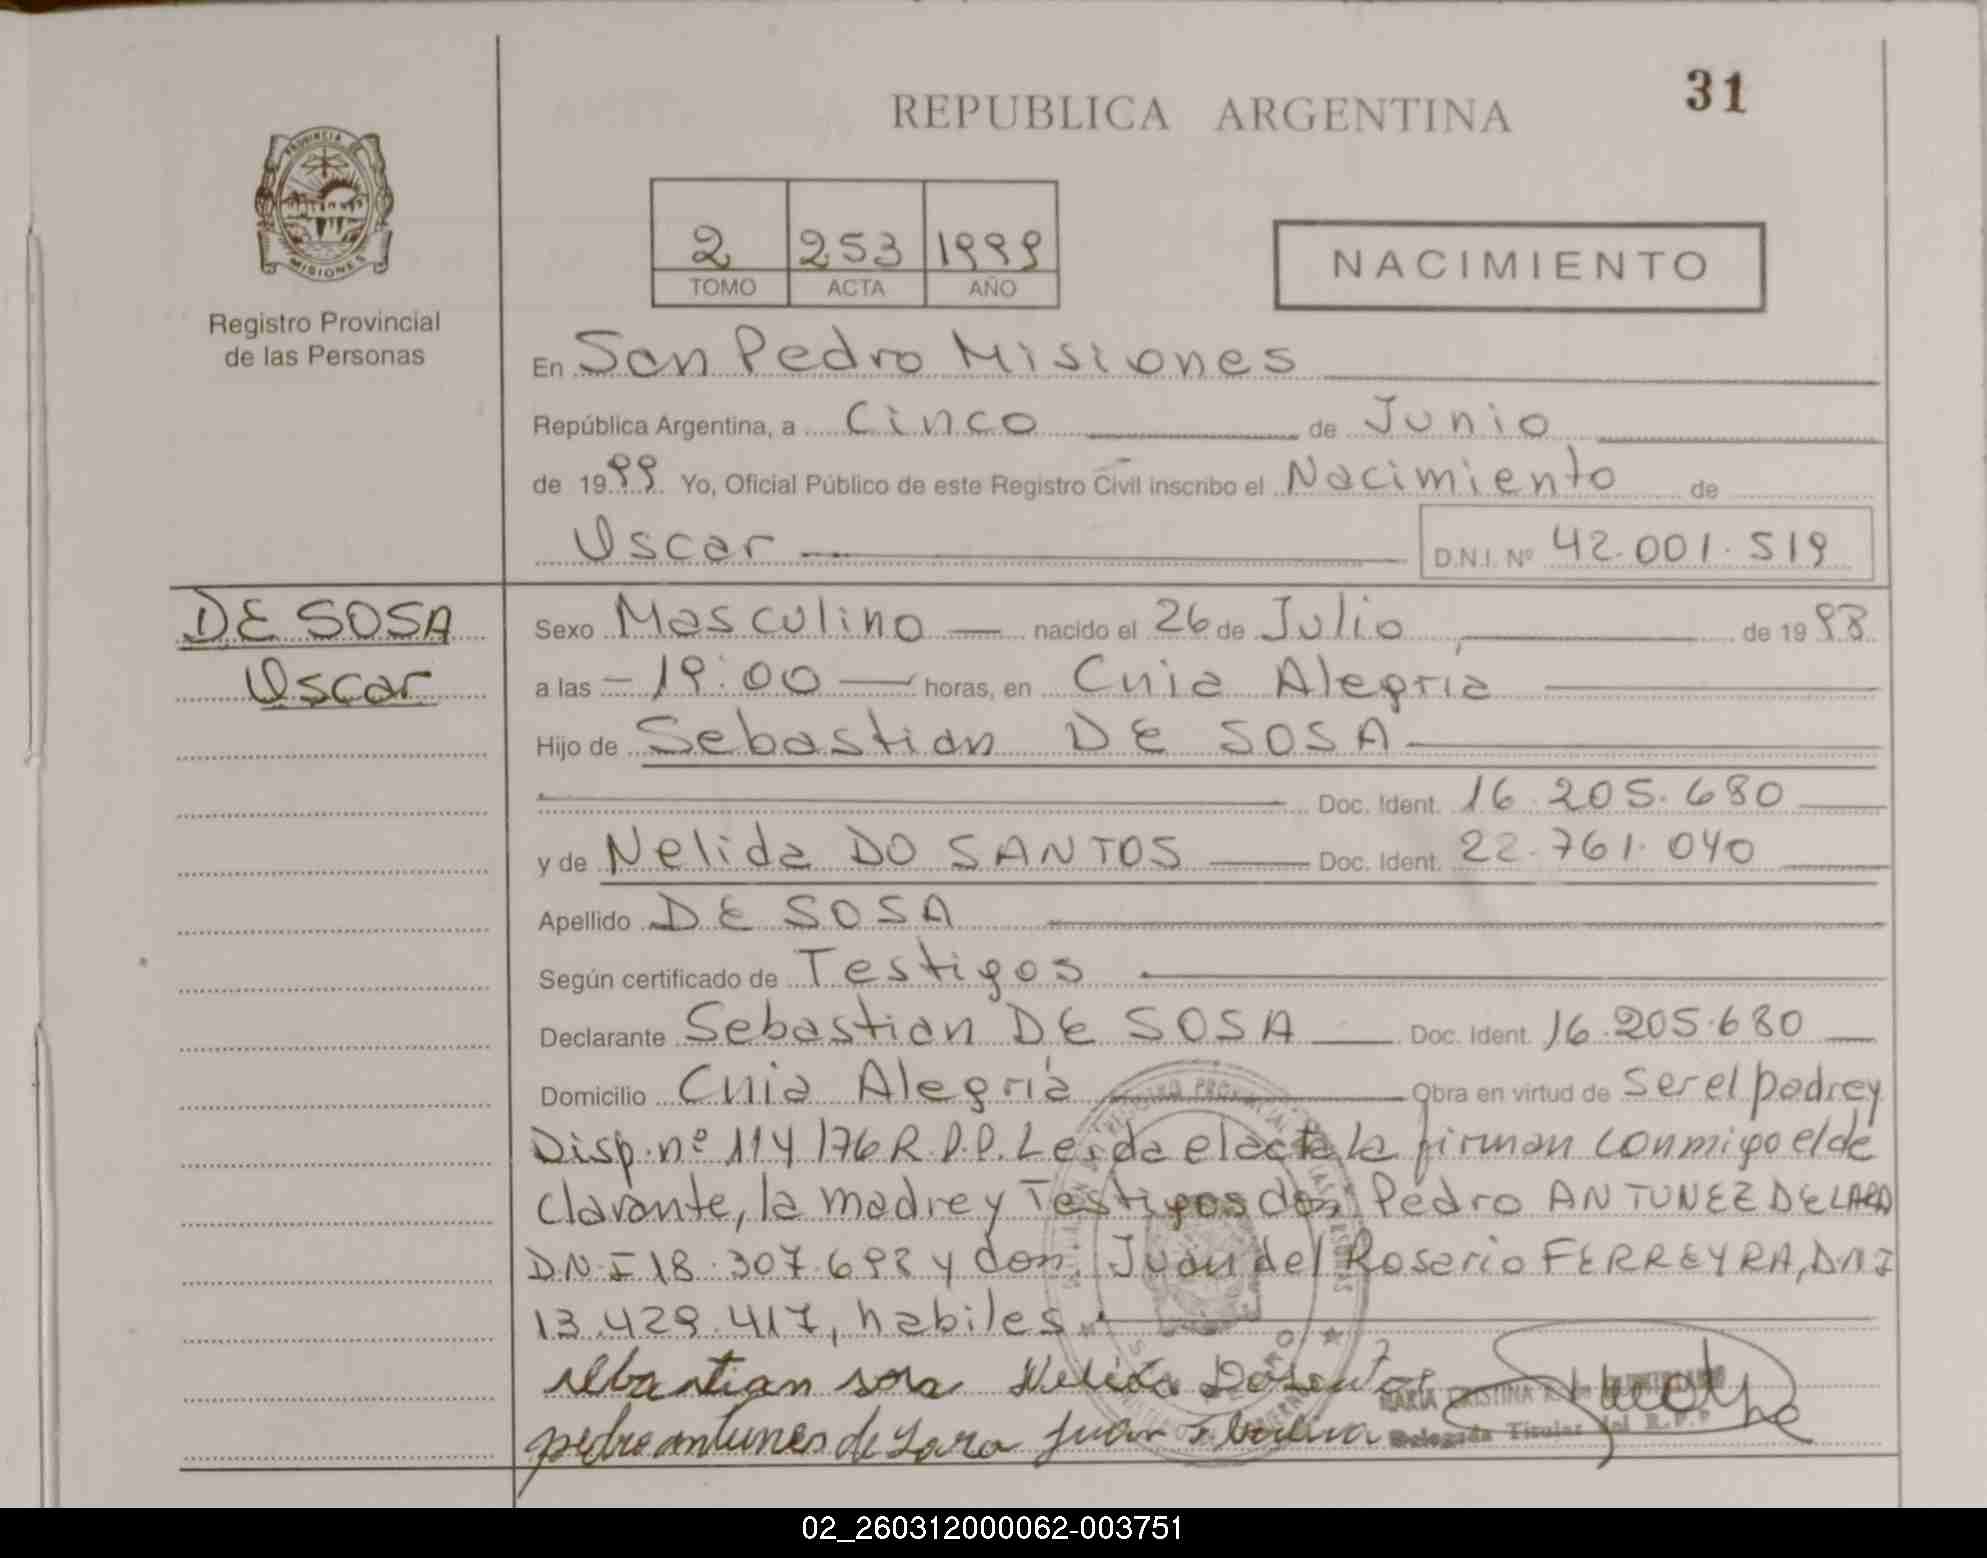 31
REPUBLICA ARGENTINA
PROVINCIA DE
MISIONES
Registro Provincial
de las Personas
2 253 1999
TOMO ACTA AÑO
NACIMIENTO
En San Pedro Misiones
República Argentina, a Cinco de Junio
de 1999 Yo, Oficial Público de este Registro Civil inscribo el Nacimiento de
Oscar D.N.I. Nº 42.001.519
DE SOSA
Oscar
Sexo Masculino nacido el 26 de Julio, de 1998
a las 19:00 horas, en Cnia Alegria
Hijo de Sebastian DE SOSA
Doc. Ident. 16.205.680
y de Nelida DO SANTOS Doc. Ident. 22.761.040
Apellido DE SOSA
Según certificado de Testigos
Declarante Sebastian DE SOSA Doc. Ident. 16.205.680
Domicilio Cnia Alegria Obra en virtud de ser el padre y
Disp. nº 114/76 R.P.P. Leida el acta la firman conmigo el de
clarante, la madre y Testigos don Pedro ANTUNEZ DE LARA
DNI 18.307.692 y don Juan del Rosario FERREYRA, DNI
13.429.417, habiles.
sebastian sosa Nelida Dosantos
pedro antunes de Lara Juan
MARIA CRISTINA
Delegada Titular del R.P.P
02_260312000062-003751